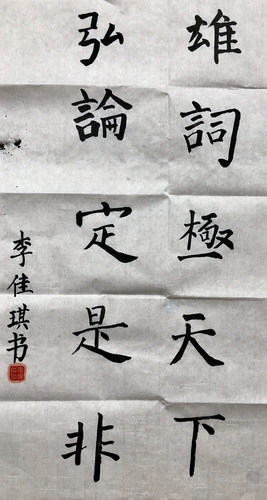 雄詞極天下
弘論定是非
李佳琪书